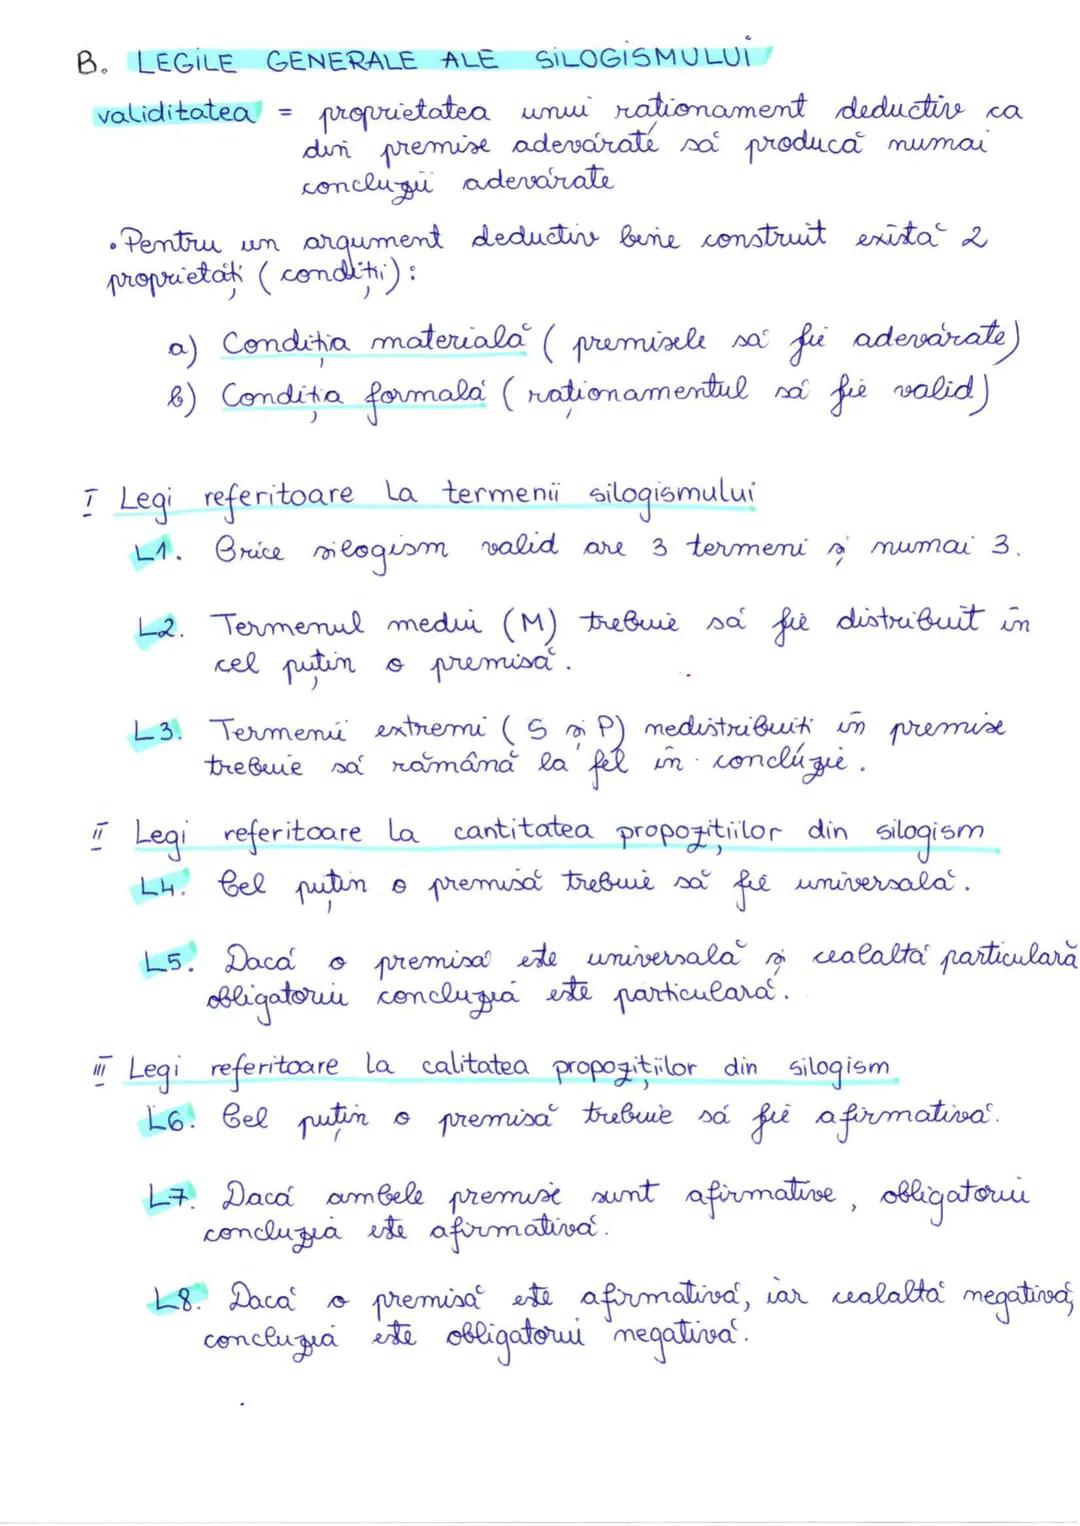 B. LEGILE GENERALE ALE SILOGISMULUI
validitatea = proprietatea unui raționament deductiv ca
din premise adevărate să producă numai
concluzii adevărate
• Pentru un argument deductiv bine construit există 2
proprietăți (condiții):
a) Condiția materială (premisele să fie adevărate)
b) Condiția formală (raționamentul să fie valid)
I Legi referitoare la termenii silogismului
L1. Orice silogism valid are 3 termeni și numai 3.
L2. Termenul mediu (M) trebuie să fie distribuit în
cel puțin o premisă.
L3. Termenii extremi (S și P) nedistribuiți în premise
trebuie să rămână la fel în concluzie.
II Legi referitoare la cantitatea propozițiilor din silogism
L4. Cel puțin o premisă trebuie să fie universală.
L5. Dacă o premisă este universală și cealaltă particulară
obligatoriu concluzia este particulară.
III Legi referitoare la calitatea propozițiilor din silogism
L6. Cel puțin o premisă trebuie să fie afirmativă.
L7. Dacă ambele premise sunt afirmative, obligatoriu
concluzia este afirmativă.
L8. Dacă o premisă este afirmativă, iar cealaltă negativă,
concluzia este obligatoriu negativă.